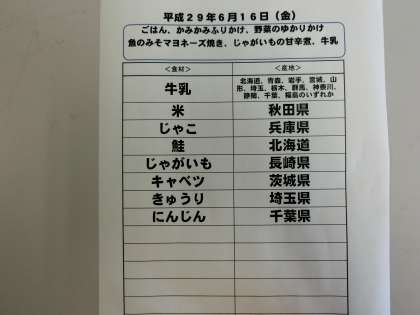 平成29年6月16日（金）
ごはん、かみかみふりかけ、野菜のゆかりかけ
魚のみそマヨネーズ焼き、じゃがいもの甘辛煮、牛乳
＜食材＞ ＜産地＞
牛乳 北海道、青森、岩手、宮城、山
形、埼玉、栃木、群馬、神奈川、
静岡、千葉、福島のいずれか
米 秋田県
じゃこ 兵庫県
鮭 北海道
じゃがいも 長崎県
キャベツ 茨城県
きゅうり 埼玉県
にんじん 千葉県